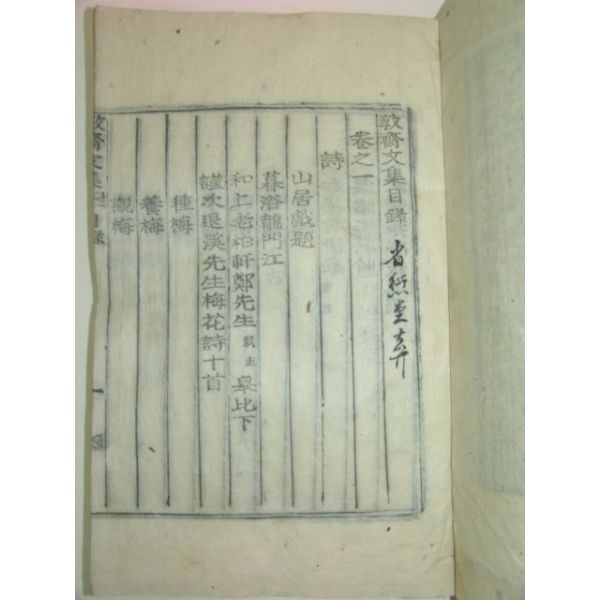 敦齋文集目錄
卷之一
詩
山居戲題
暮浴龍門江
和上老栢軒鄭先生 載圭 皋比下
謹次退溪先生梅花詩十首
種梅
養梅
觀梅
敦齋文集 目錄 一